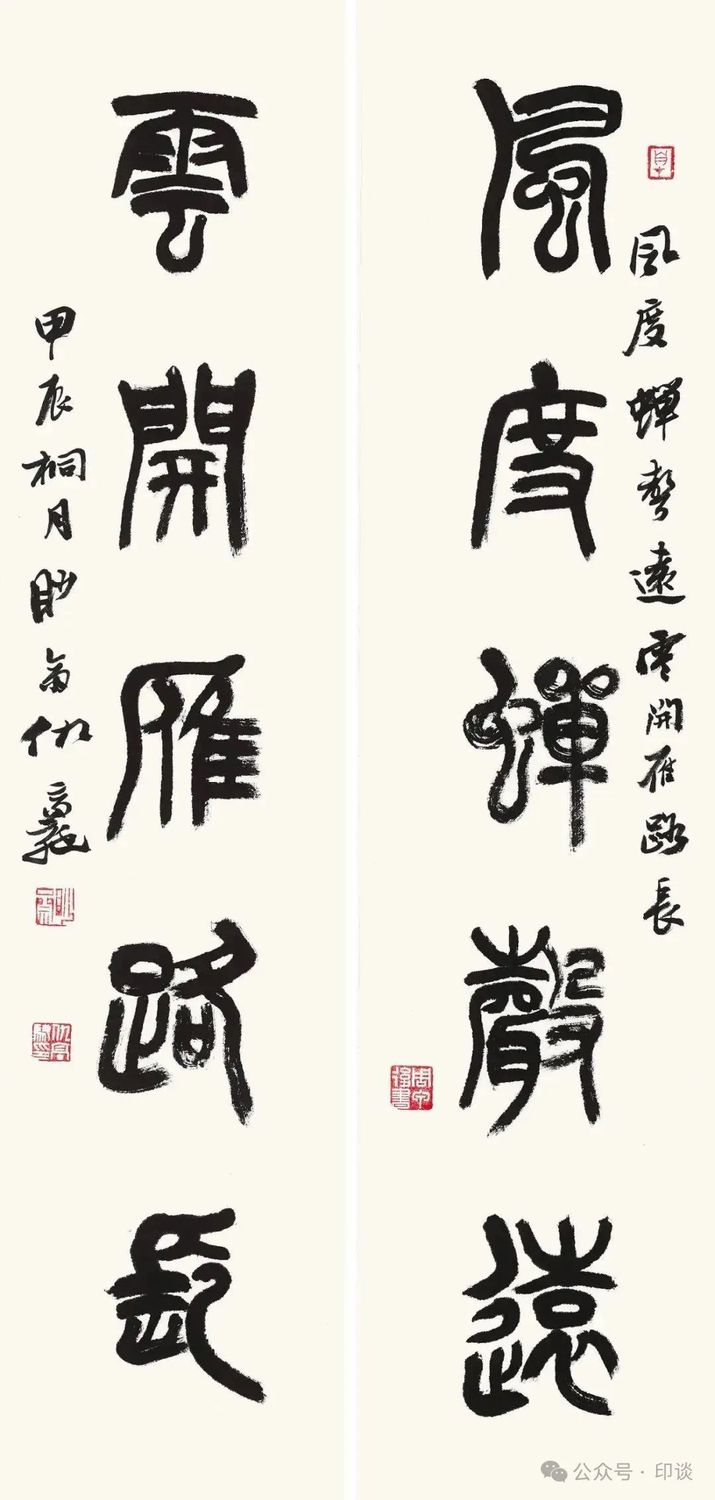 風度蟬聲遠
风度蝉聲遠雲開雁路長
雲開雁路長
甲辰桐月眇翁仇高義
公众号·印谈